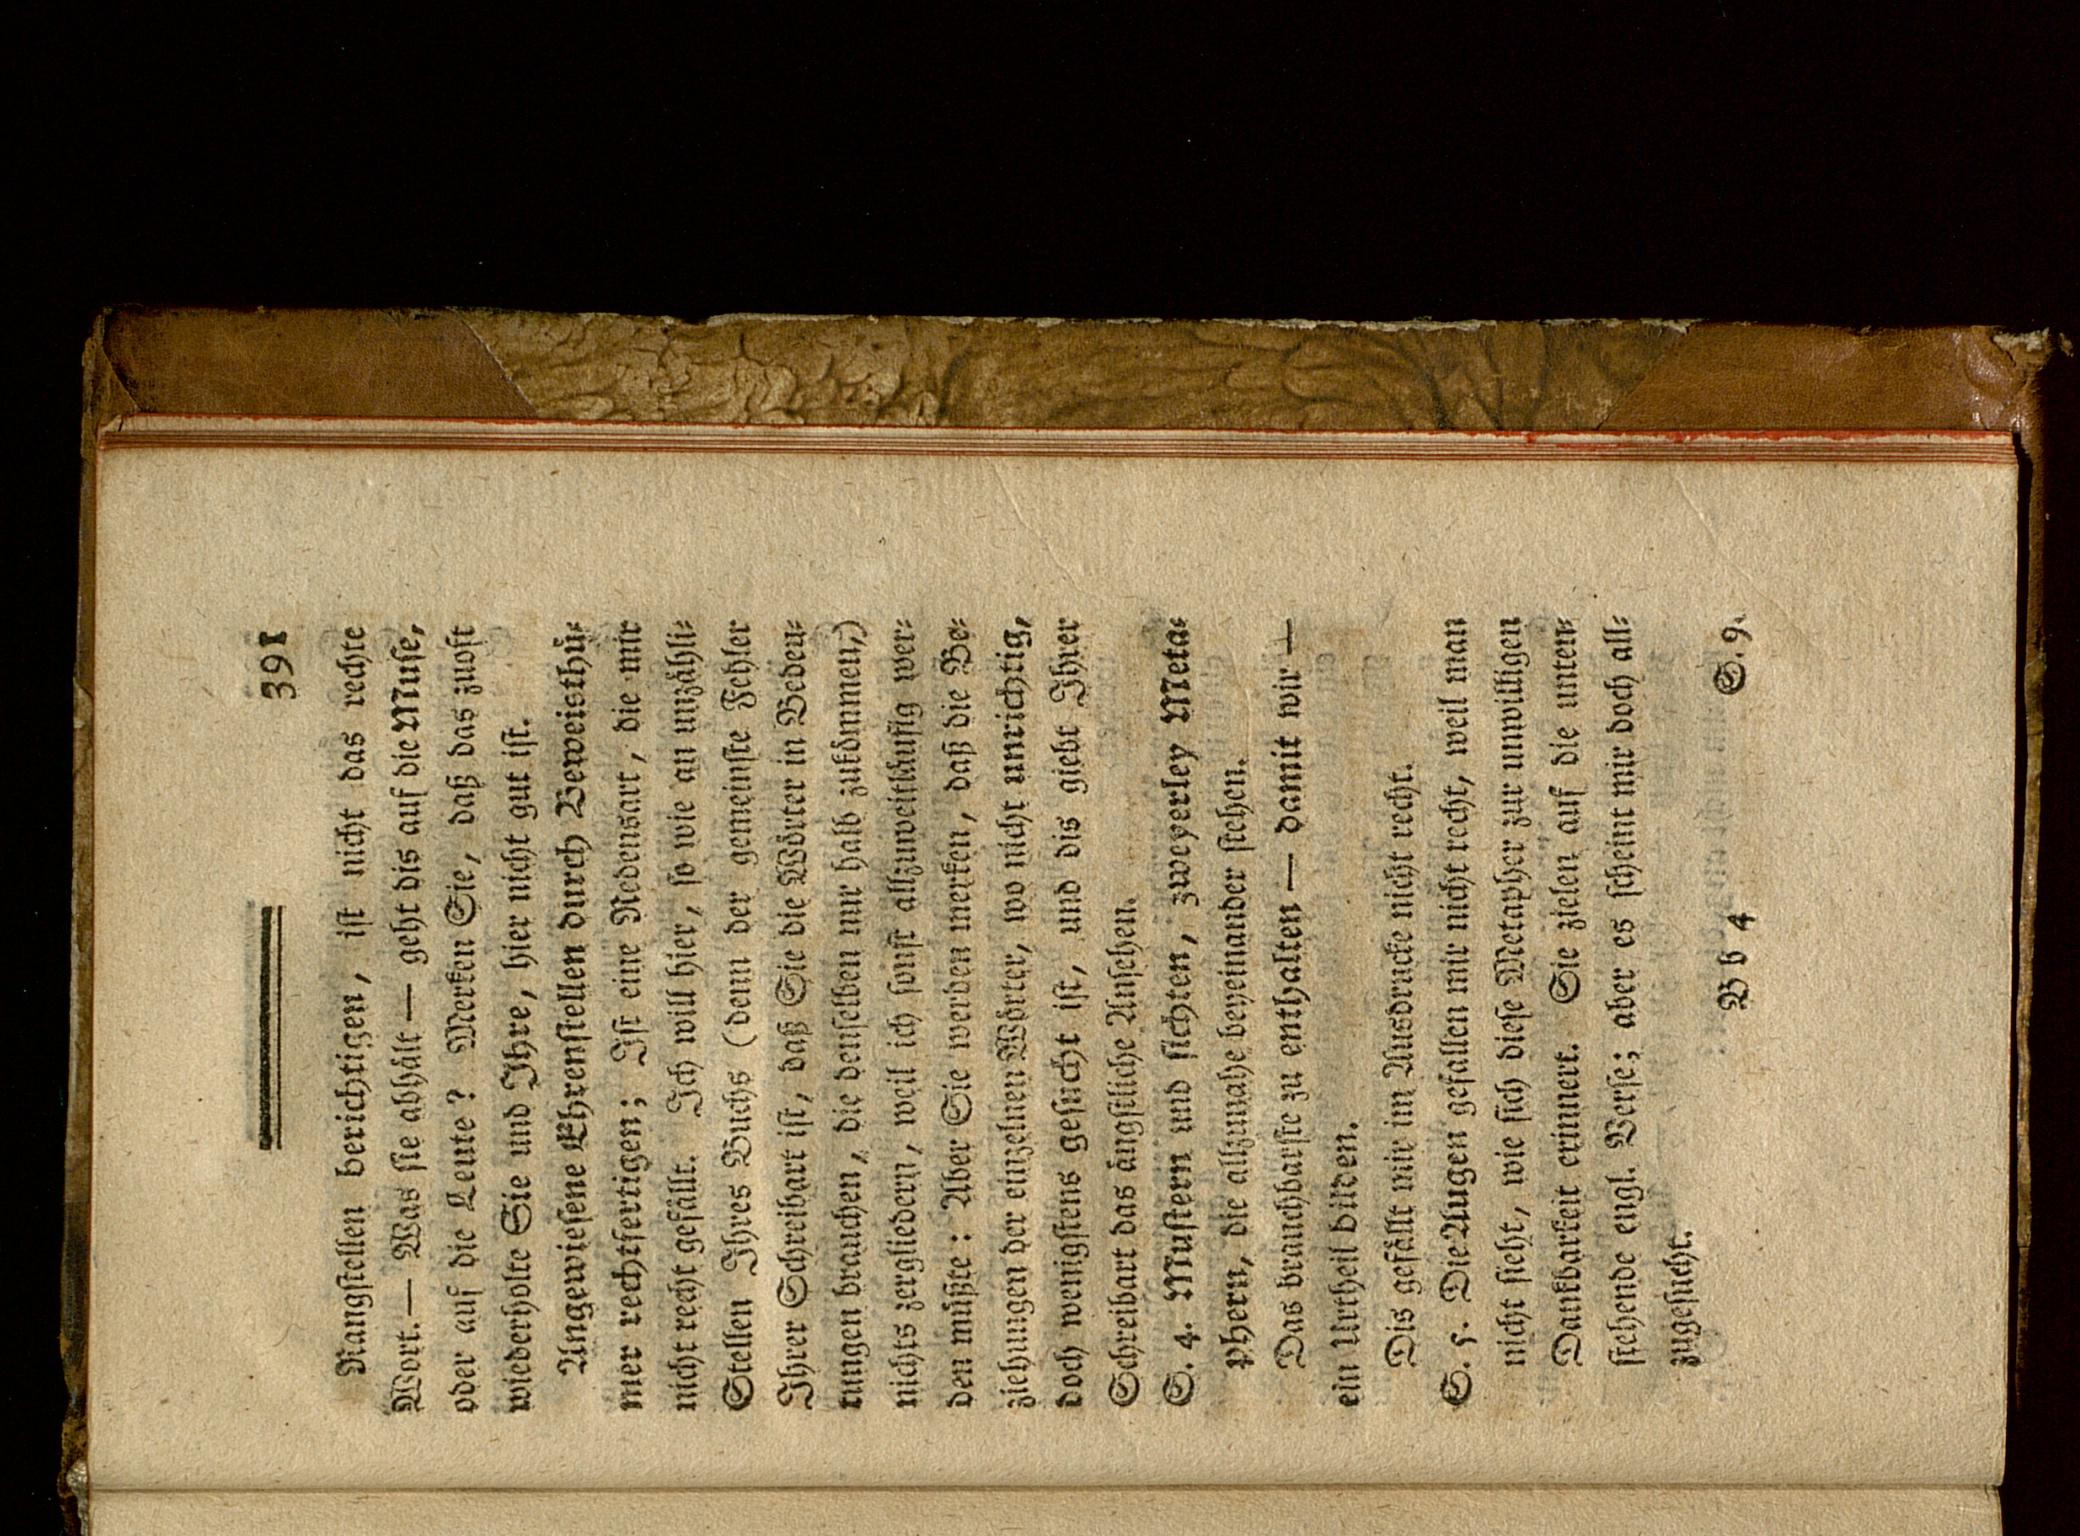 391
Rangstellen berichtigen, ist nicht das rechte
Wort. — Was sie abhält — geht dis auf die Muse,
oder auf die Leute? Merken Sie, daß das zuoft
wiederholte Sie und Ihre, hier nicht gut ist.
Angewiesene Ehrenstellen durch Beweisthü-
mer rechtfertigen; Ist eine Redensart, die mir
nicht recht gefällt. Ich will hier, so wie an unzähli-
Stellen Ihres Buchs (denn der gemeinste Fehler
Ihrer Schreibart ist, daß Sie die Wörter in Bedeu-
tungen brauchen, die denselben nur halb zukömmen,)
nichts zergliedern, weil ich sonst allzuweitläufig wer-
den müßte: Aber Sie werden merken, daß die Be-
ziehungen der einzelnen Wörter, wo nicht unrichtig,
doch wenigstens gesucht ist, und dis giebt Ihrer
Schreibart das ängstliche Ansehen.
S. 4. Mustern und sichten, zweyerley Meta-
phern, die allzunahe beyeinander stehen.
Das brauchbarste zu enthalten — damit wir —
ein Urtheil bilden.
Dis gefällt mir im Ausdrucke nicht recht.
S. 5. Die Augen gefallen mir nicht recht, weil man
nicht sieht, wie sich diese Metapher zur unwilligen
Dankbarkeit erinnert. Sie zielen auf die unten-
stehende engl. Verse; aber es scheint mir doch all-
zugesucht.
B b 4 S. 9.